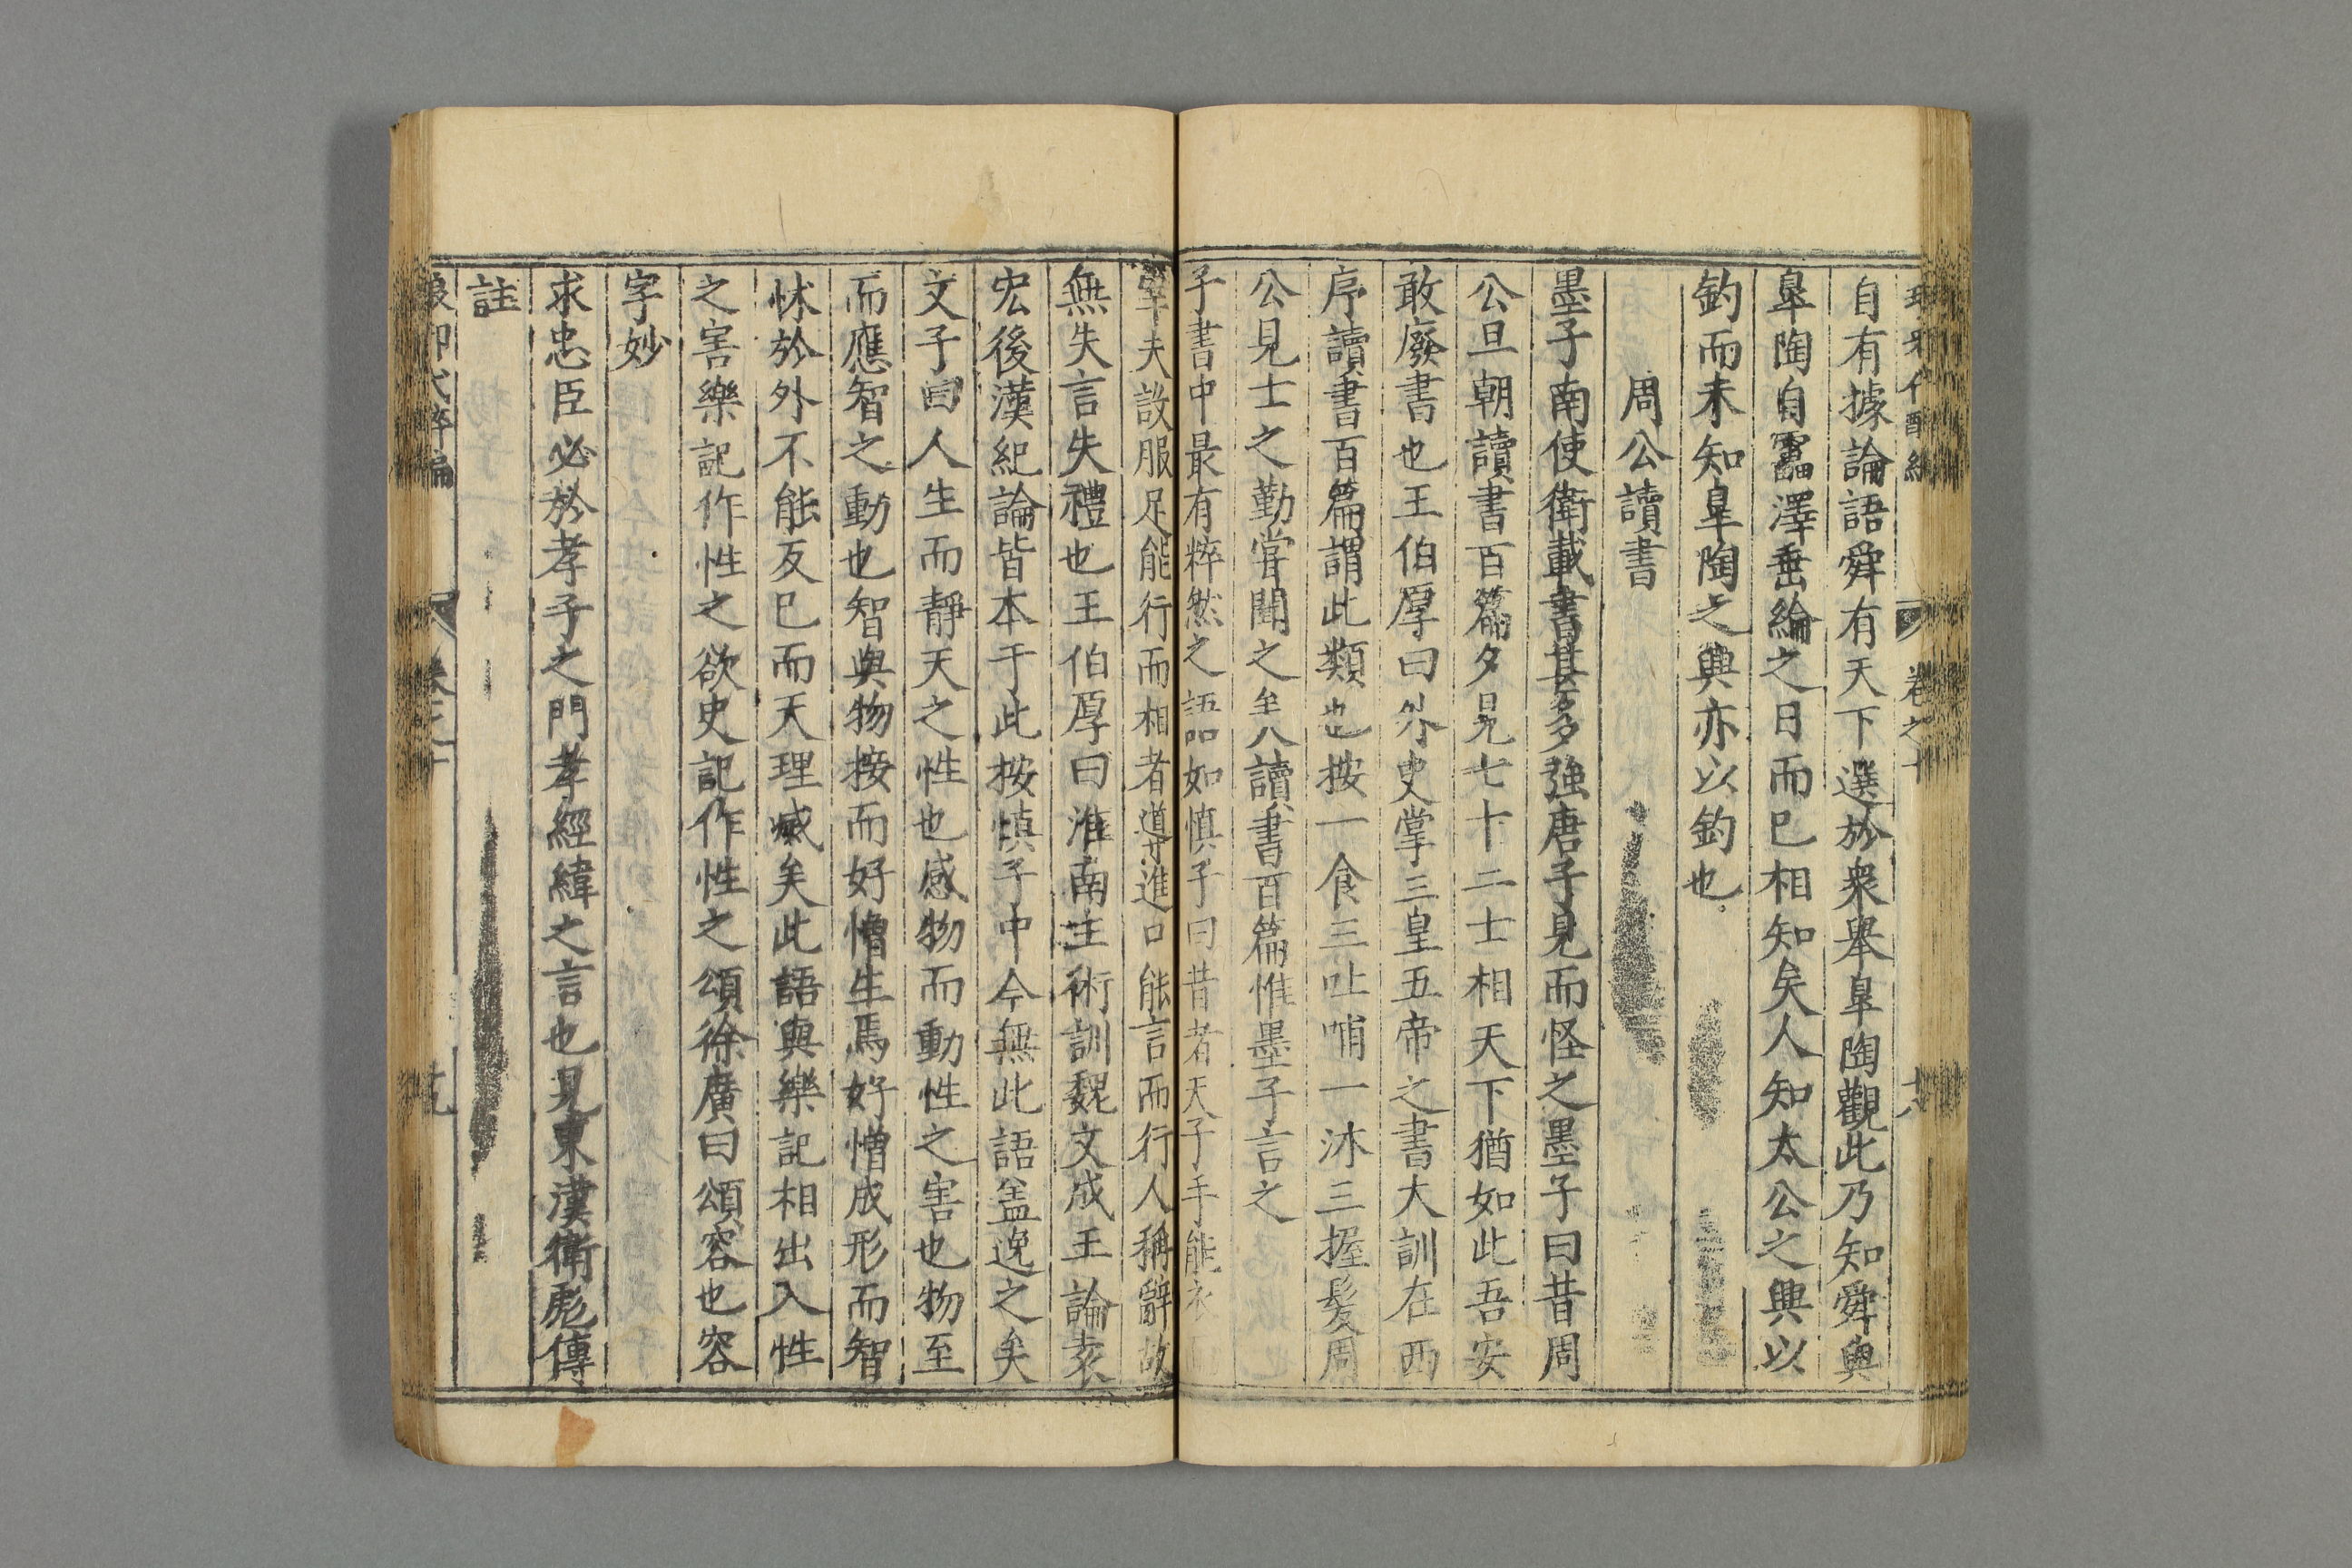 卷之十
十八
自有據論語舜有天下選於衆舉臯陶觀此乃知舜與
臯陶自靁澤垂綸之日而已相知矣人知太公之興以
釣而未知臯陶之興亦以釣也
周公讀書
墨子南使衛載書甚多強唐子見而怪之墨子曰昔周
公旦朝讀書百篇夕見七十二士相天下猶如此吾安
敢廢書也王伯厚曰外史掌三皇五帝之書大訓在西
序讀書百篇謂此類也按一食三吐哺一沐三握髮周
公見士之勤嘗聞之矣讀書百篇惟墨子言之
子書中最有粹然之語如慎子曰昔者天子手能衣
宰夫設服足能行而相者導進口能言而行人稱辭故
無失言失禮也王伯厚曰淮南主術訓魏文成王論袁
宏後漢紀論皆本于此按慎子中今無此語盖逸之矣
文子曰人生而靜天之性也感物而動性之害也物至
而應智之動也智與物接而好憎生焉好憎成形而智
怵於外不能反已而天理滅矣此語與樂記相出入性
之害樂記作性之欲史記作性之頌徐廣曰頌容也容
字妙
求忠臣必於孝子之門孝經緯之言也見東漢衛彪傳
註
琅邪代醉編
卷之十
十九